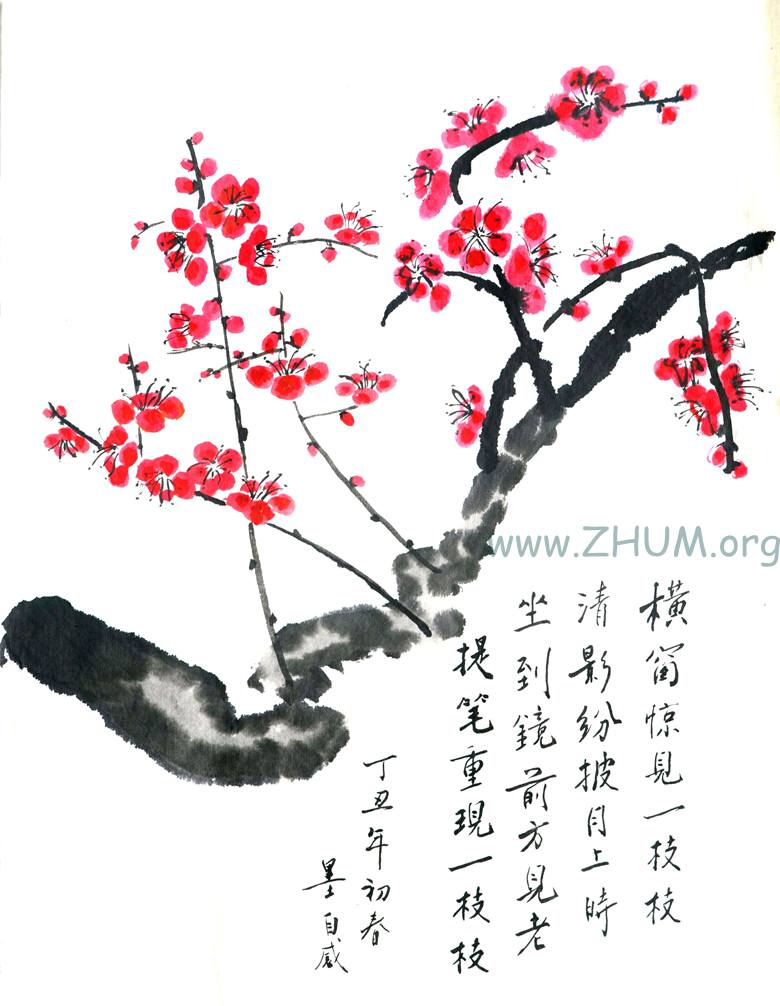 www.ZHUM.org
橫窗惊見一枝枝
清影纷披月上時
坐到鏡前方見老
提笔重現一枝枝
丁丑年初春
墨自感